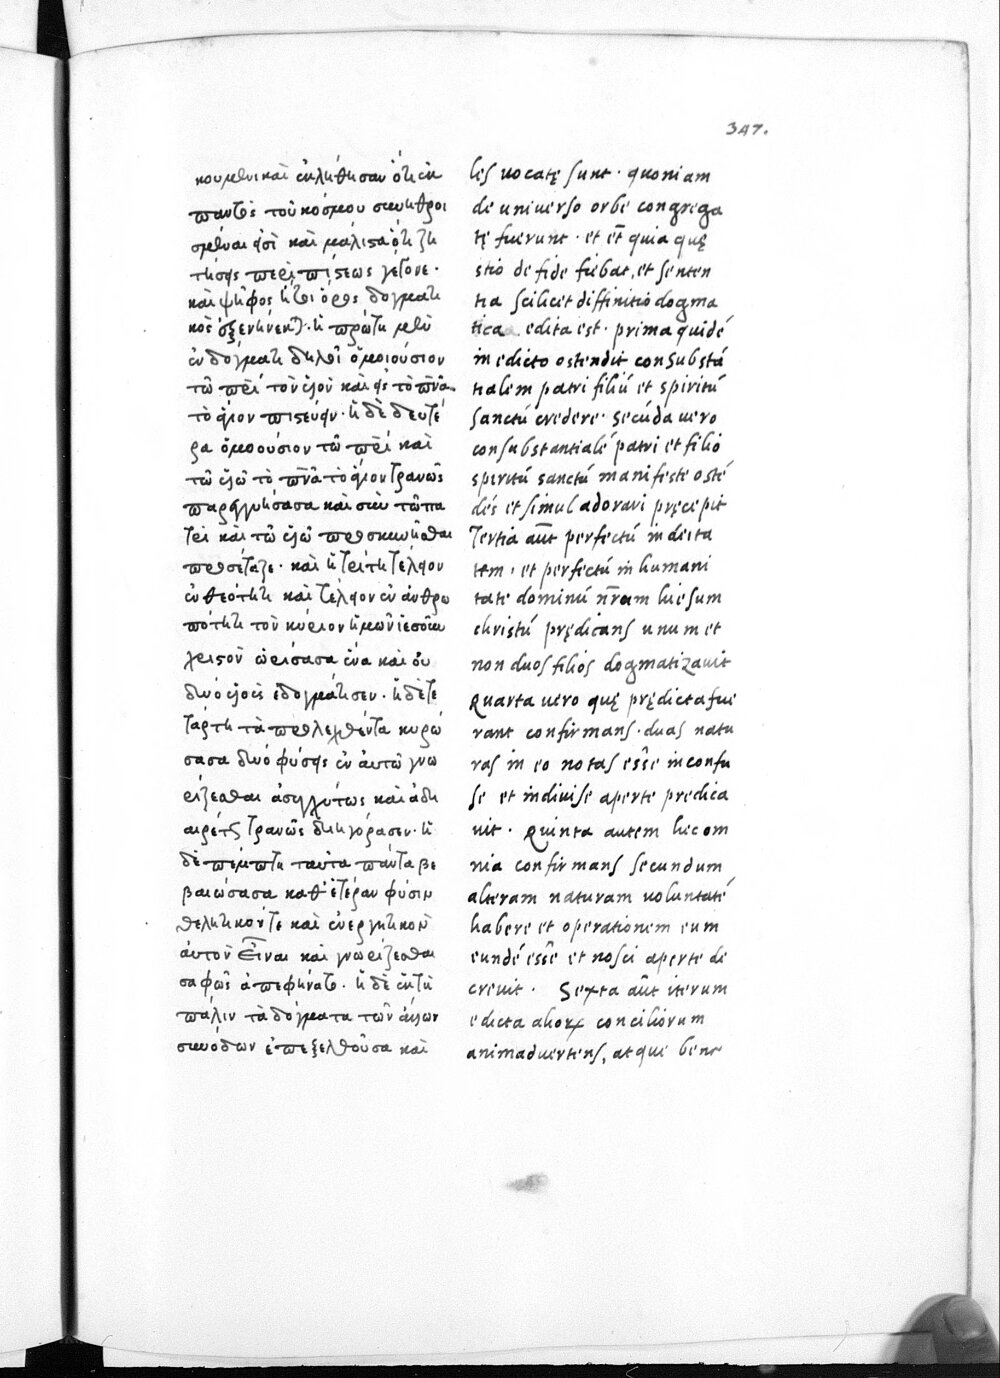 347.
κουμενικαὶ ἐκλήθησαν ὅτι ἐκ
παντὸς τοῦ κόσμου συνηθροι
σμέναι εἰσὶ καὶ μάλιστα ὅτι ζη
τήσεις περὶ πίστεως γέγονε·
καὶ ψῆφος ἤτοι ὅρος δογματι
κὸς ἐξενήνεκται· ἡ πρώτη μὲν
ἐν δόγματι δηλοῖ ὁμοιούσιον
τῶ πρὶ τὸν υἱὸν καὶ εἰς τὸ πνᾶ
τὸ ἅγιον πιστεύειν· ἡ δὲ δευτέ
ρα ὁμοούσιον τῶ πρὶ καὶ
τῶ υἱῶ τὸ πνᾶ τὸ ἅγιον τρανῶς
παραγγυήσασα καὶ σὺν τῶ πα
τρὶ καὶ τῶ υἱῶ προσκυνῆσθαι
προσέταξε· καὶ ἡ τρίτη τέλειον
ἐν θεότητι καὶ τέλειον ἐν ἀνθρω
πότητι τὸν κύριον ἡμῶν ἰησοῦν
χριστὸν ὡρίσασα ἕνα καὶ οὐ
δύο υἱοὺς ἐδογμάτισεν· ἡ δὲ τε
τάρτη τὰ προλεχθέντα κυρώ
σασα δύο φύσεις ἐν αὐτῶ γνω
ρίζεσθαι ἀσυγχύτως καὶ ἀδι
αιρέτως τρανῶς διηγόρασεν· ἡ
δὲ πέμπτη ταῦτα πάντα βε
βαιώσασα καθ' ἑτέραν φύσιν
θελητικόν τε καὶ ἐνεργητικὸν
αὐτὸν εἶναι καὶ γνωρίζεσθαι
σαφῶς ἀπεφήνατο· ἡ δὲ ἕκτη
πάλιν τὰ δόγματα τῶν ἄλλων
συνόδων ἐπεξελθοῦσα καὶ
les vocatę sunt · quoniam
de universo orbe congrega
tę fuerunt · et et̄ quia quę
stio de fide fiebat, et senten
tia scilicet diffinitio dogma
tica edita est · prima quidé
in edicto ostendit consubstá
tialem patri filiú et spiritú
sanctú credere · secúda vero
consubstantialé patri et filio
spiritú sanctú manifeste osté
dés et simul adorari pręcepit
Tertia aūt perfectú in deita
tem · et perfectú in humani
tate dominú nr̄um Iuesum
christú prędicans unum et
non duos filios dogmatizavit
Quarta vero quę prędicta fue
rant confirmans · duas natu
ras in eo notas ess̄e inconfu
se et indivise aperte predica
vit · Quinta autem hęc om
nia confirmans secundum
alteram naturam voluntaté
habere et operationem eum
eundé ess̄e et nosci aperte de
crevit · Sexta aūt iterum
edicta alioꝝ conciliorum
animadvertens, atque bene